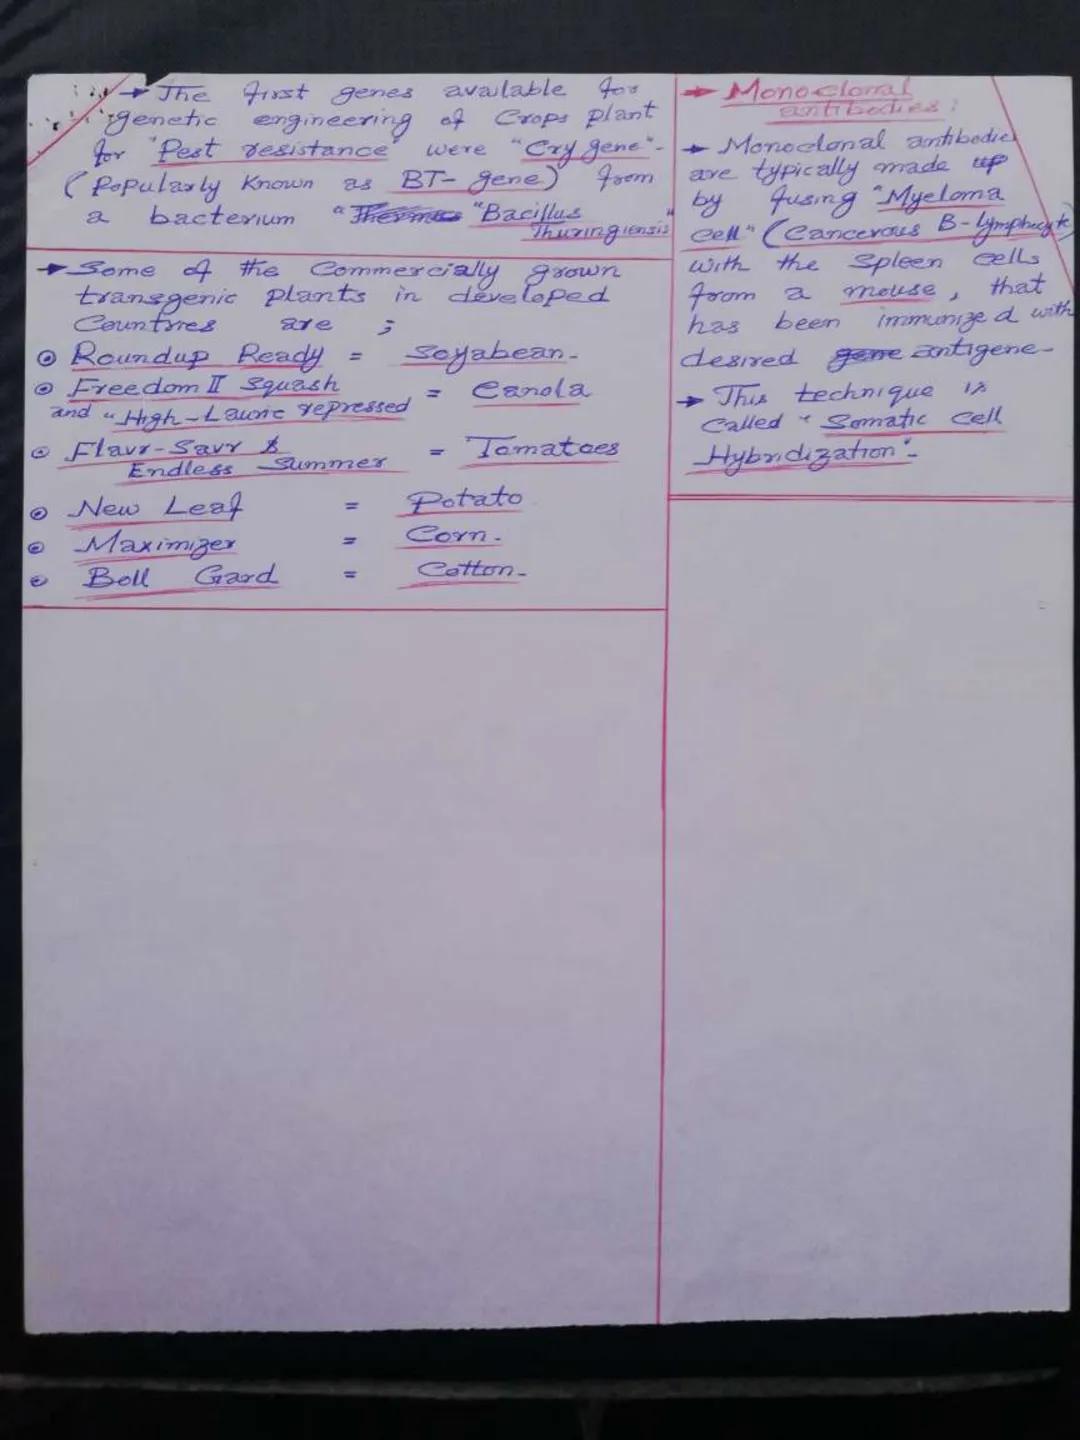 → The first genes available for
genetic engineering of Crops plant
for "Pest resistance" were "Cry gene".
(Popularly Known as BT- gene) from
a bacterium " "Bacillus
Thuringiensis"
→ Some of the Commercially grown
transgenic plants in developed
Countries are ;
Roundup Ready = Soyabean.
Freedom II squash
and "High-Lauric repressed = Canola
Flavr-Savr &
Endless Summer = Tomatoes
New Leaf = Potato
Maximizer = Corn.
Boll Gard = Cotton.
→ Monoclonal
antibodies:
→ Monoclonal antibodies
are typically made up
by fusing "Myeloma
cell" (Cancerous B-lymphocyte)
with the Spleen cells
from a mouse, that
has been immunized with
desired gene antigene.
→ This technique is
Called "Somatic Cell
Hybridization".